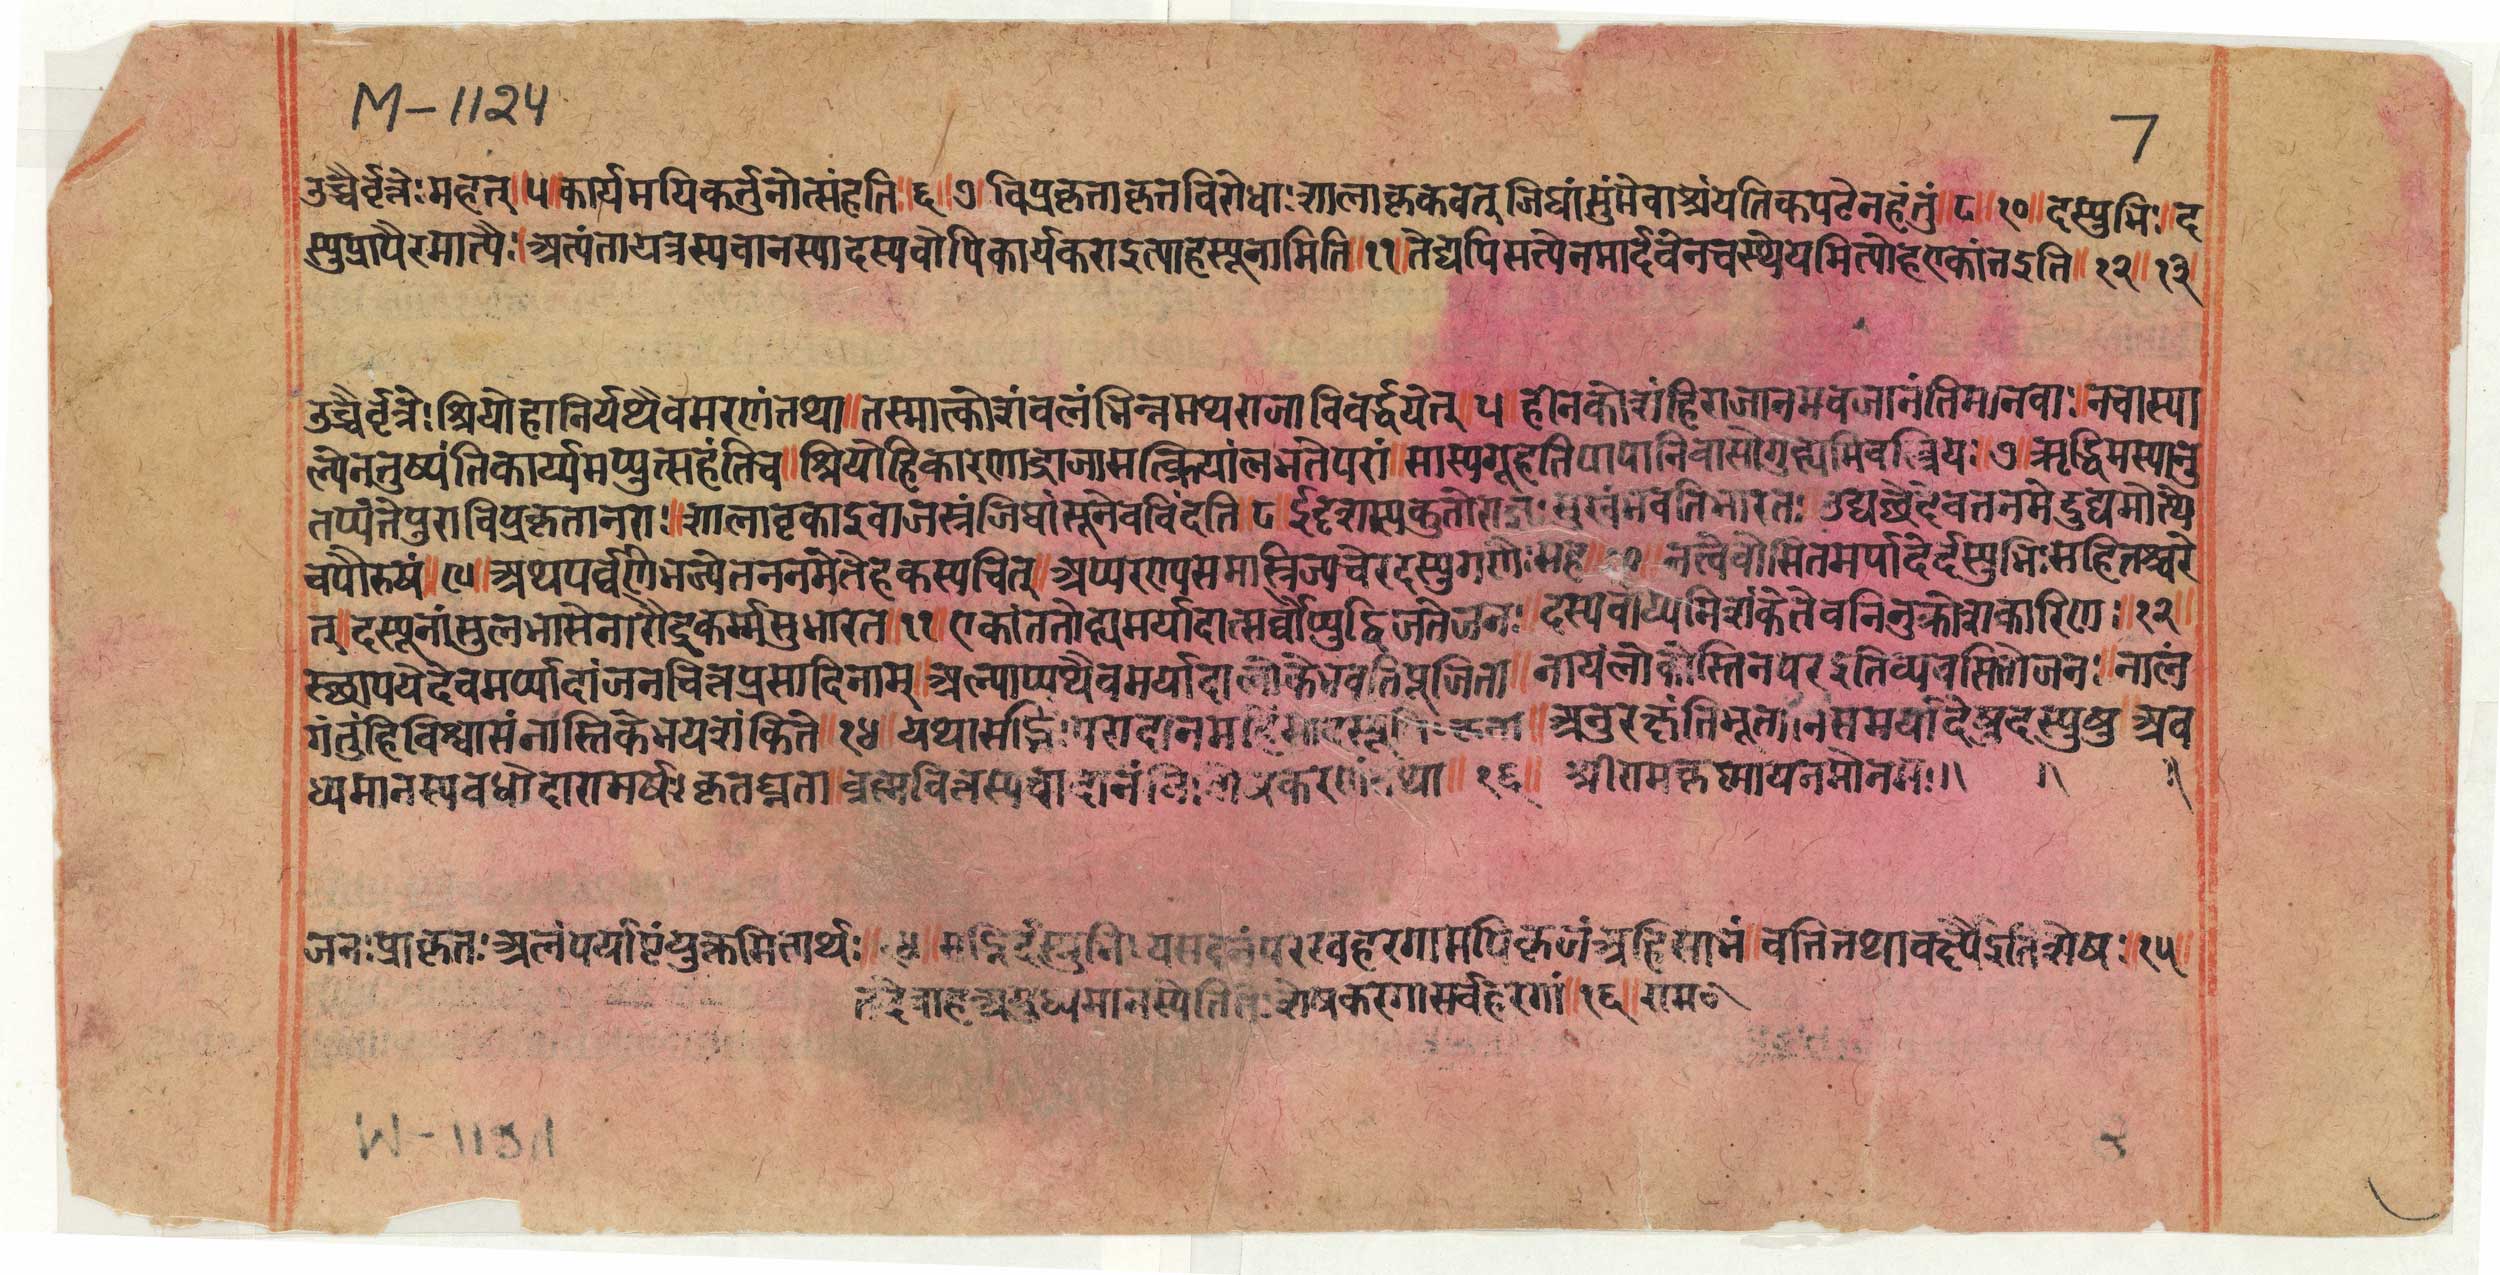 M-1124
7
उच्चैर्वृत्तेः महत् ॥ ५ ॥ कार्यमपिकर्तुंनोत्संहति ॥ ६ ॥ ७ विप्रकृताकृतविरोधाः शालाकृकवत् जिघांसुंमेवाश्रंयतिकपटेनहंतुं ॥ ८ ॥ १० ॥ दस्युभिः ॥ द
स्युप्रायैरमात्यैः ॥ अत्यंता यदस्यवो पिकार्यकराइत्याहस्यूनामिति ॥ ११ ॥ तेद्यपिसत्येनमार्दवेनचस्थेयमित्याहएकांतइति ॥ १२ ॥ १३
उच्चैर्वृत्तेः श्रियोहानिर्यथैवमरणंतथा ॥ तस्मात्कोशंबलंभिन्नमथराजाविवर्द्धयेत् ५ हीनकोशंहिराजानमवजानंतिमानवाः नचास्या
ल्पेनतुष्यंतिकार्य्यमप्युत्सहंतिच ॥ श्रियोहिकारणाद्राजासत्क्रियांलभतेपरां ॥ सास्यगूहतिपापानिवासोगुह्यमिवस्त्रियः ७ ऋद्धिमस्यानु
तप्यंतेपुराविप्रकृतानराः ॥ शालावृकाइवाजस्रंजिघांसूनेवविंदति ॥ ८ ॥ ईदृशस्यकुतोराज्ञः सुखंभवतिभारत उद्यछेदेवतननमेदुद्यमोत्थे
वपौरुषं ॥ ९ ॥ अथपर्वणिभज्येतननमेतेहकस्यचित् ॥ अप्परण्यसमाश्रित्यचरेदस्युगणैः सह १० ॥ नत्वेवोझितमर्यादैर्दस्युभिः सहितश्चरे
त् ॥ दस्यूनांसुलभासेनारौद्रकर्म्मसुभारत ॥ ११ ॥ एकांततोह्यमर्यादात्सर्वोप्युद्विजतेजनः दस्यवोप्यभिशंकेतेवनिनुक्रोशकारिणः ॥ १२ ॥
स्थापयेदेवमर्य्यादांजनचित्तप्रसादिनाम् ॥ अल्पाप्यथैवमर्यादालोकेभवतिपूजिता ॥ नायंलोकोस्तिनपरइतिव्यवसितोजनः ॥ नालं
गंतुंहिविश्वासंनास्तिकेभयशंकिते ॥ १४ ॥ यथासद्भिः परादानम अनुरक्षंतिभूतानिसमर्यादेषुदस्युषु अव
ध्यमानस्यवधोदारामर्षः कृतघ्नता ॥ ब्रह्मवित्तस्यचादानंनिः शेषकरणंतथा ॥ १६ ॥ श्रीरामकृष्णायनमोनमः ॥ ॥ ॥
जनः प्राकृतः अलंपर्याप्तंयुक्तमित्यर्थः ॥ १४ ॥ परस्वहरणमपि वक्तितथावदध्यैइतिशेषः ॥ १५ ॥
तदेवाहअयुध्यमानस्येति शेषकरणंसर्वहरणं ॥ १६ ॥ राम